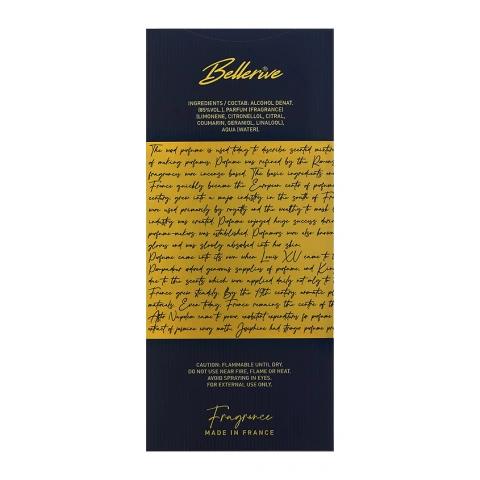 Bellerive®
INGREDIENTS / СОСТАВ: ALCOHOL DENAT.
(85%VOL.), PARFUM (FRAGRANCE)
(LIMONENE, CITRONELLOL, CITRAL,
COUMARIN, GERANIOL, LINALOOL),
AQUA (WATER).
The word perfume is used today to describe scented mixtures
of making perfumes. Perfume was refined by the Romans
fragrances were incense based. The basic ingredients and
France quickly became the European centre of perfume
century grew into a major industry in the south of France
were used primarily by royalty and the wealthy to mask
industry was created. Perfume enjoyed huge success during
perfume-makers was established. Perfumers were also known
gloves and was slowly absorbed into her skin.
Perfume came into its own when Louis XV came to
Pompadour ordered generous supplies of perfume, and King
due to the scents which were applied daily not only to
France grew steadily. By the 19th century, aromatic
materials. Even today, France remains the centre of the
After Napoleon came to power exorbitant expenditures for perfume
extract of jasmine every month, Josephine had strange perfume
CAUTION: FLAMMABLE UNTIL DRY.
DO NOT USE NEAR FIRE, FLAME OR HEAT.
AVOID SPRAYING IN EYES.
FOR EXTERNAL USE ONLY.
Fragrance
MADE IN FRANCE